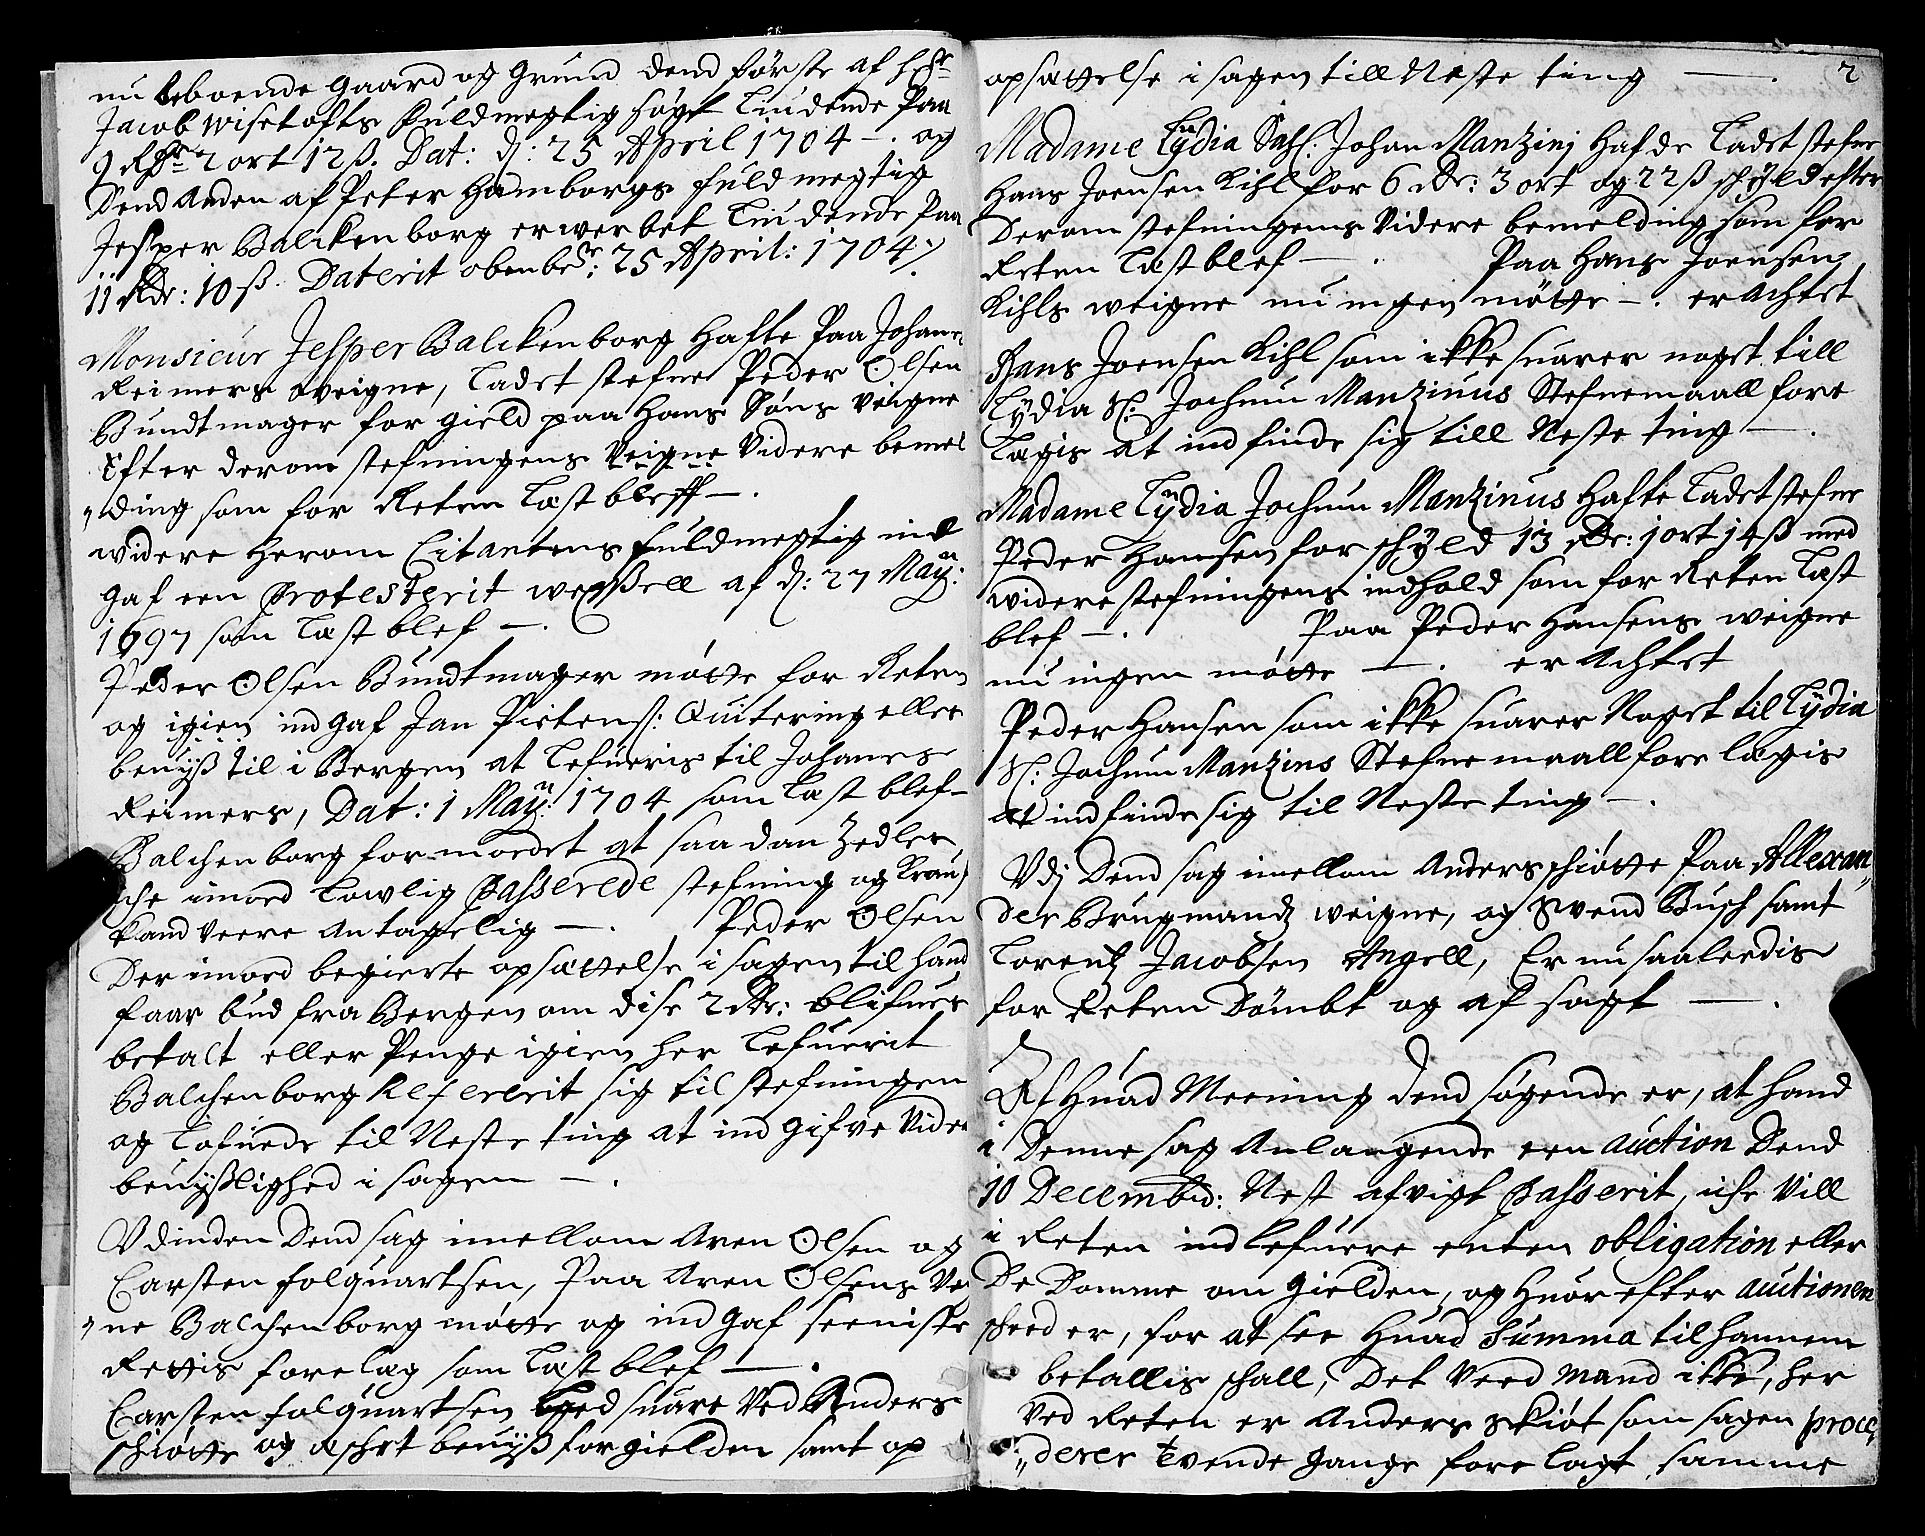 nu beboende gaard og grund dend förste af hr
Jacob Wisetofts fuldmegtig søgt Liudende Paa
9 Rdr 2 ort 12 ß. Dat: d: 25 April 1704 -. og
Dend Anden af Peter Hamborgs fuldmegtig
Jesper Balckenborg erwerbet Liudende Paa
11 Rdr: 10 ß. Daterit obenbdr: 25 April: 1704 /.
Monsieur Jesper Balckenborg hafte Paa Johan
Reimers weigne, Ladet stefne Peder Olsen
Bundtmager for gield paa hans Søns Veigne
Efter derom stefningens Veigne Videre bemel
„ding som for Reten Læst bleff -.
widere herom Citantens fuldmegtig ind
gaf een Protesterit wexßell af d: 27 Maÿ:
1697 som Læst blef -.
Peder Olsen Bundtmager mötte for Reten
og igien ind gaf Jan Pietens: Quitering eller
beuiß til i Bergen at Lefueris til Johanes
Reimers, Dat: 1 Maÿ: 1704 som Læst blef -
Balchenborg formoedet at saadan Zedler
iche imod Lowlig Passerede stefning og Krauf
kand veere Antagelig -. Peder Olsen
Der imod begierte opsættelse i sagen til hand
faar bud fra Bergen om disse 2 Rdr: blifuer
betalt eller Penge igien her Lefuerit
Balchenborg Refererit sig til stefningen
og Lofuede til Neste ting at ind gifve Vider
beuißlighed i sagen -.
Vdinden Dend sag imellom Aren Olsen og
Carsten folquartsen, Paa Aren Olsens Vei
„ne Balchenborg mötte og ind gaf seeniste
Rettis forelæg som Læst blef -.
Carsten folquartsen Loed suare Ved Anders
schiötte og eschet beuiß for gielden samt op
opsættelse i sagen till Neste ting -. 2
Madame Lÿdia Sahl: Johan Manzinj hafde Ladet stefne
hans Joensen Kihl for 6 Rdr: 3 ort og 22 ß schÿld efter
Derom stefningens Videre bemelding som for
Reten Læst blef -. Paa hans Joensen
Kihls weigne nu ingen mötte -. er Achtet
Hans Joensen Kihl som ikke suarer noget till
Lÿdia Sl: Jochum Manzinus Stefnemaall fore
Lægis at ind finde sig till Neste ting -.
Madame Lÿdia Jochum Manzinus hafte Ladet stefne
Peder Hansen for schÿld 13 Rdr: 1 ort 14 ß med
widere stefningens indhold som for Reten Læst
blef -. Paa Peder Hansens weigne
nu ingen mötte -. er Achtet
Peder Hansen som ikke suarer Noget til Lÿdia
Sl: Jochum Manzins Stefnemaall fore lægis
at ind finde sig til Neste ting -.
Vdj Dend sag imellom Anders schiötte Paa Allexan„
der Brugmandz weigne, og Swend Busch samt
Lorentz Jacobsen Angell, Er nu saaleedis
for Reten Dömbt og af sagt -.
Af Huad Meening dend søgende er, at hand
i Denne sag Anlangende een auction Dend
10 Decembr: Nest afvigt Passerit, iche Vill
i Reten ind Lefuere enten obligation eller
De Domme om gielden, og Huor efter auctionen
scheed er, for at see Huad Summa til hannem
betallis schall, Det Veed mand ikke, her
Ved Reten er Anders Skiöt som sagen proce„
„derer tvende gange fore Lagt samme